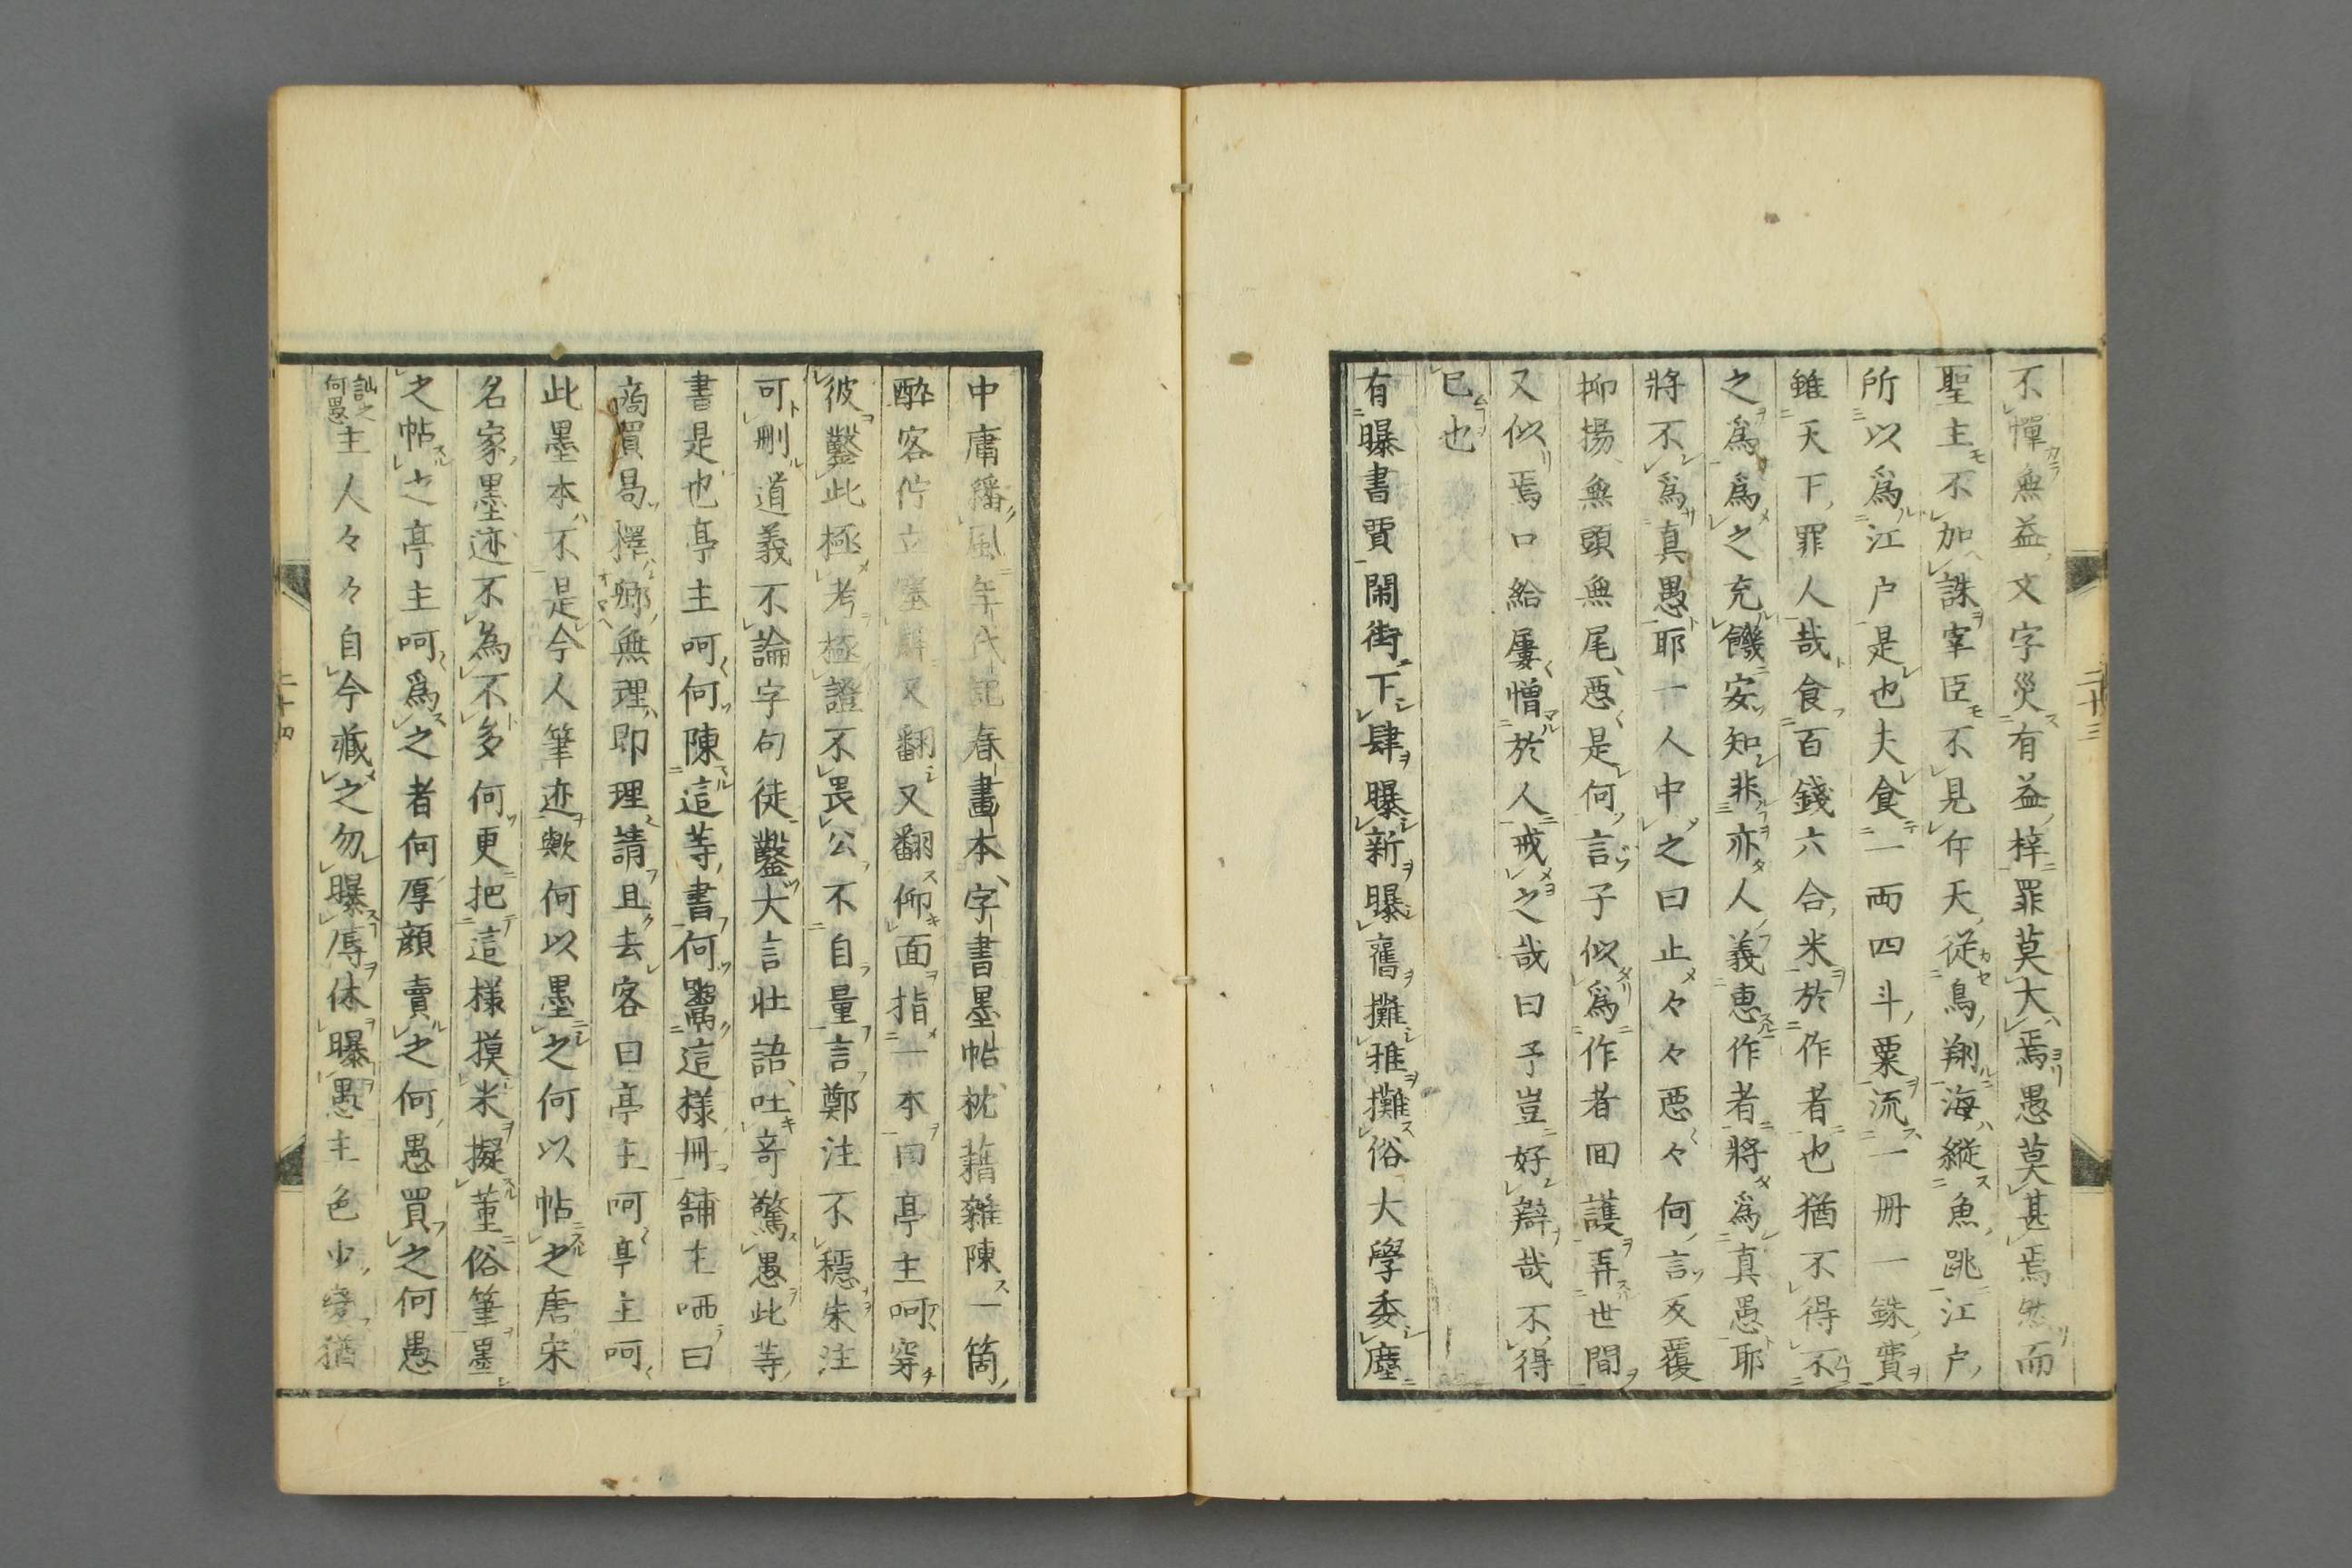 不憚無益文字災有益梓罪莫大焉愚莫甚焉然而
聖主不加誅宰臣不見仵天從鳥翔海縱魚跳江戶
所以爲江戶是也夫食一両四斗粟流一冊一銖賣
雖天下罪人哉食百錢六合米於作者也猶不得不
之爲爲之充饑安知非亦人義恵作者將爲真愚耶
將不爲真愚耶一人中之曰止々々悪々何言反覆
抑揚無頭無尾悪是何言子似爲作者回護弄世間
又似焉口給屢憎於人戒之哉曰予豈好辯哉不得
已也
有曝書賈鬧街下肆曝新曝舊攤雅攤俗大學委塵
二十三
中庸繙風年代記春畫本字書墨帖枕藉雜陳一箇
酔客佇立塞辟又翻又翻仰面指一本向亭主呵穿
彼鑿此極考極證不畏公不自量言鄭注不穏朱注
可刪道義不論字句徒鑿大言壮語吐竒驚愚此等
書是也亭主呵何陳這等書何鬻這様冊舗主哂曰
商買曷擇郷無理即理請且去客曰亭主呵亭主呵
此墨本不是今人筆迹歟何以墨之何以帖之唐宋
名家墨迹不為不多何更把這様摸米擬董俗筆墨
之帖之亭主呵爲之者何厚顔賣之何愚買之何愚
訕之何愚主人々々自今藏之勿曝辱休曝愚主色少變猶
二十四